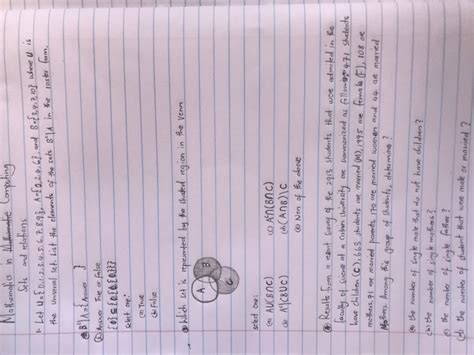 Mathematics in Computing
Sets and relations
1. Let U={0,1,2,3,4,5,6,7,8,9}, A={0,2,6} and B={3,4,7,10} where U is
the universal set. List the elements of the sets B'\A in the roster form.
B'\A={Answer }
② Answer True or false
select one:
(a) True
(b) False
③ Which set is represented by the shaded region in the Venn
A
B
C
select one:
(a) AU(B∩C) (c) A'∩(B∩C)
(b) A'(BUC) (d) (A∩B)\C
(e) None of the above
④ Results from a recent survey of the 2913 students that were admitted in the
faculty of science at a certain University are summarized as follows: 471 students
have children (C), 663 students are married (M), 1995 are female (F), 108 are
mothers, 91 are married parents, 170 are married women and 44 are married
Mothers. Among this group of students, determine?
(a) the number of single male that do not have children?
(b) the number of single mothers?
(c) the number of single father?
(d) the number of student that were male or married?